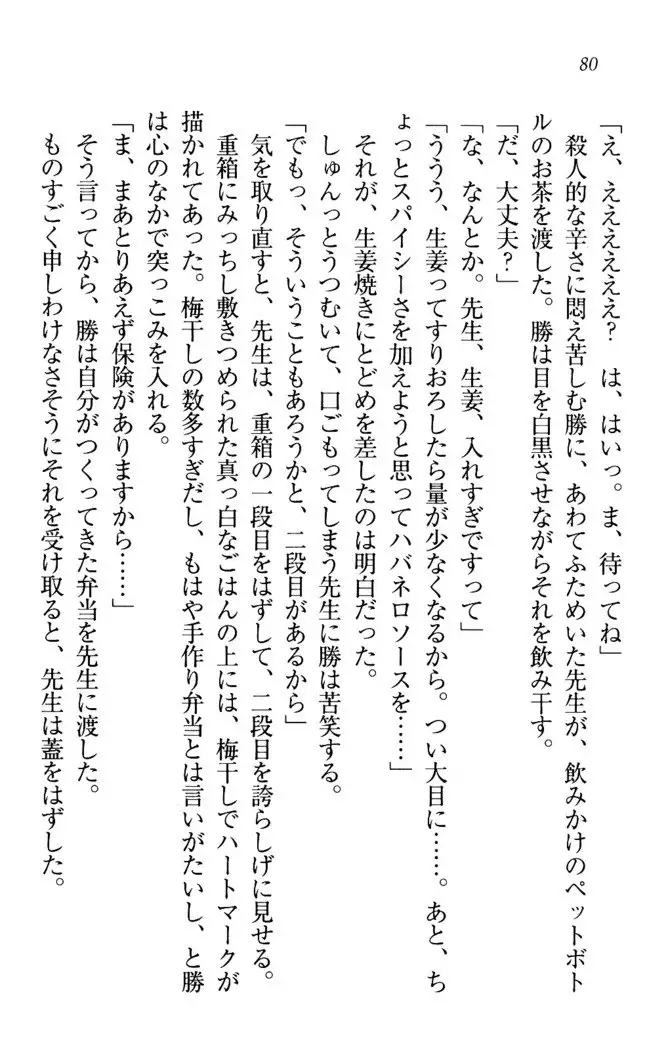 80
「え、ええええええ？　は、はいっ。ま、待ってね」
　殺人的な辛さに悶え苦しむ勝に、あわてふためいた先生が、飲みかけのペットボト
ルのお茶を渡した。勝は目を白黒させながらそれを飲み干す。
「だ、大丈夫？」
「な、なんとか。先生、生姜、入れすぎですって」
「ううう、生姜ってすりおろしたら量が少なくなるから。つい大目に……。あと、ち
ょっとスパイシーさを加えようと思ってハバネロソースを……」
　それが、生姜焼きにとどめを差したのは明白だった。
　しゅんっとうつむいて、口ごもってしまう先生に勝は苦笑する。
「でもっ、そういうこともあろうかと、二段目があるから」
　気を取り直すと、先生は、重箱の一段目をはずして、二段目を誇らしげに見せる。
　重箱にみっちし敷きつめられた真っ白なごはんの上には、梅干しでハートマークが
描かれてあった。梅干しの数多すぎだし、もはや手作り弁当とは言いがたいし、と勝
は心のなかで突っこみを入れる。
「ま、まあとりあえず保険がありますから……」
　そう言ってから、勝は自分がつくってきた弁当を先生に渡した。
　ものすごく申しわけなさそうにそれを受け取ると、先生は蓋をはずした。